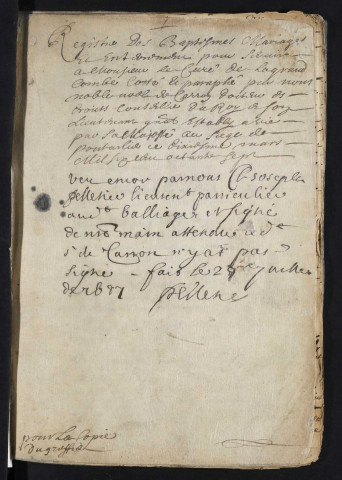 1
Registre des Baptismes Mariages
et enterrements pour servir
a Monsieur le Curé de la grand
Combe Cotté et paraphé par nous
noble de docteur es
droits Conseiller du Roy et son
Lieutenant establi
par sa Majesté au siege de
pontarlier ce troisieme mars
Mil six cens octante sept
veu encor par nous Cl Joseph
pelletier lieutent particulier
aud balliage et signé
de n main attendu q led
sr de Cannon n'y at pas
signe - fait le 2 juillet
de 1687 Pelletie
pour la Copie
Du greffe